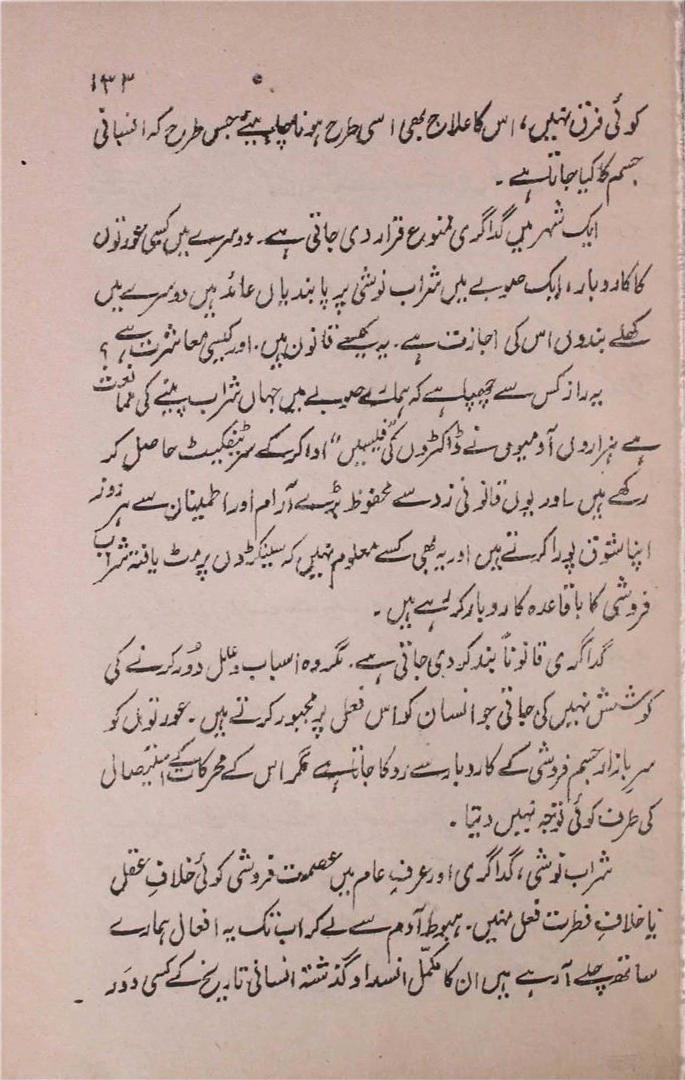 ۱۳۳
کوئی فرق نہیں، اس کا علاج بھی اسی طرح ہونا چاہیئے جس طرح کہ انسانی
جسم کا کیا جاتا ہے۔
ایک شہر میں گداگری ممنوع قرار دی جاتی ہے۔ دوسرے میں کسبی عورتوں
کا کاروبار، ایک صوبے میں شراب نوشی پر پابندیاں عائد ہیں دوسرے میں
کھلے بندوں اس کی اجازت ہے۔ یہ کیسے قانون ہیں۔ اور کیسی معاشرت ہے؟
یہ راز کس سے چھپا ہے کہ ہمارے صوبے میں جہاں شراب پینے کی ممانعت
ہے ہزاروں آدمیوں نے ڈاکٹروں کی ”فیسیں“ ادا کر کے سرٹیفکیٹ حاصل کر
رکھے ہیں۔ اور یوں قانونی زد سے محفوظ بڑے آرام اور اطمینان سے ہر روز
اپنا شوق پورا کرتے ہیں اور یہ بھی کسے معلوم نہیں کہ سینکڑوں پرمٹ یافتہ شراب
فروشی کا باقاعدہ کاروبار کر رہے ہیں۔
گداگری قانوناً بند کر دی جاتی ہے۔ مگر وہ اسباب و علل دُور کرنے کی
کوشش نہیں کی جاتی جو انسان کو اس فعل پر مجبور کرتے ہیں۔ عورتوں کو
سرِ بازار جسم فروشی کے کاروبار سے روکا جاتا ہے مگر اس کے محرکات کے استیصال
کی طرف کوئی توجہ نہیں دیتا۔
شراب نوشی، گداگری اور عرفِ عام میں عصمت فروشی کوئی خلافِ عقل
یا خلافِ فطرت فعل نہیں۔ ہبوطِ آدم سے لے کر اب تک یہ افعال ہمارے
ساتھ چلے آ رہے ہیں ان کا مکمّل انسداد گذشتہ انسانی تاریخ کے کسی دَور